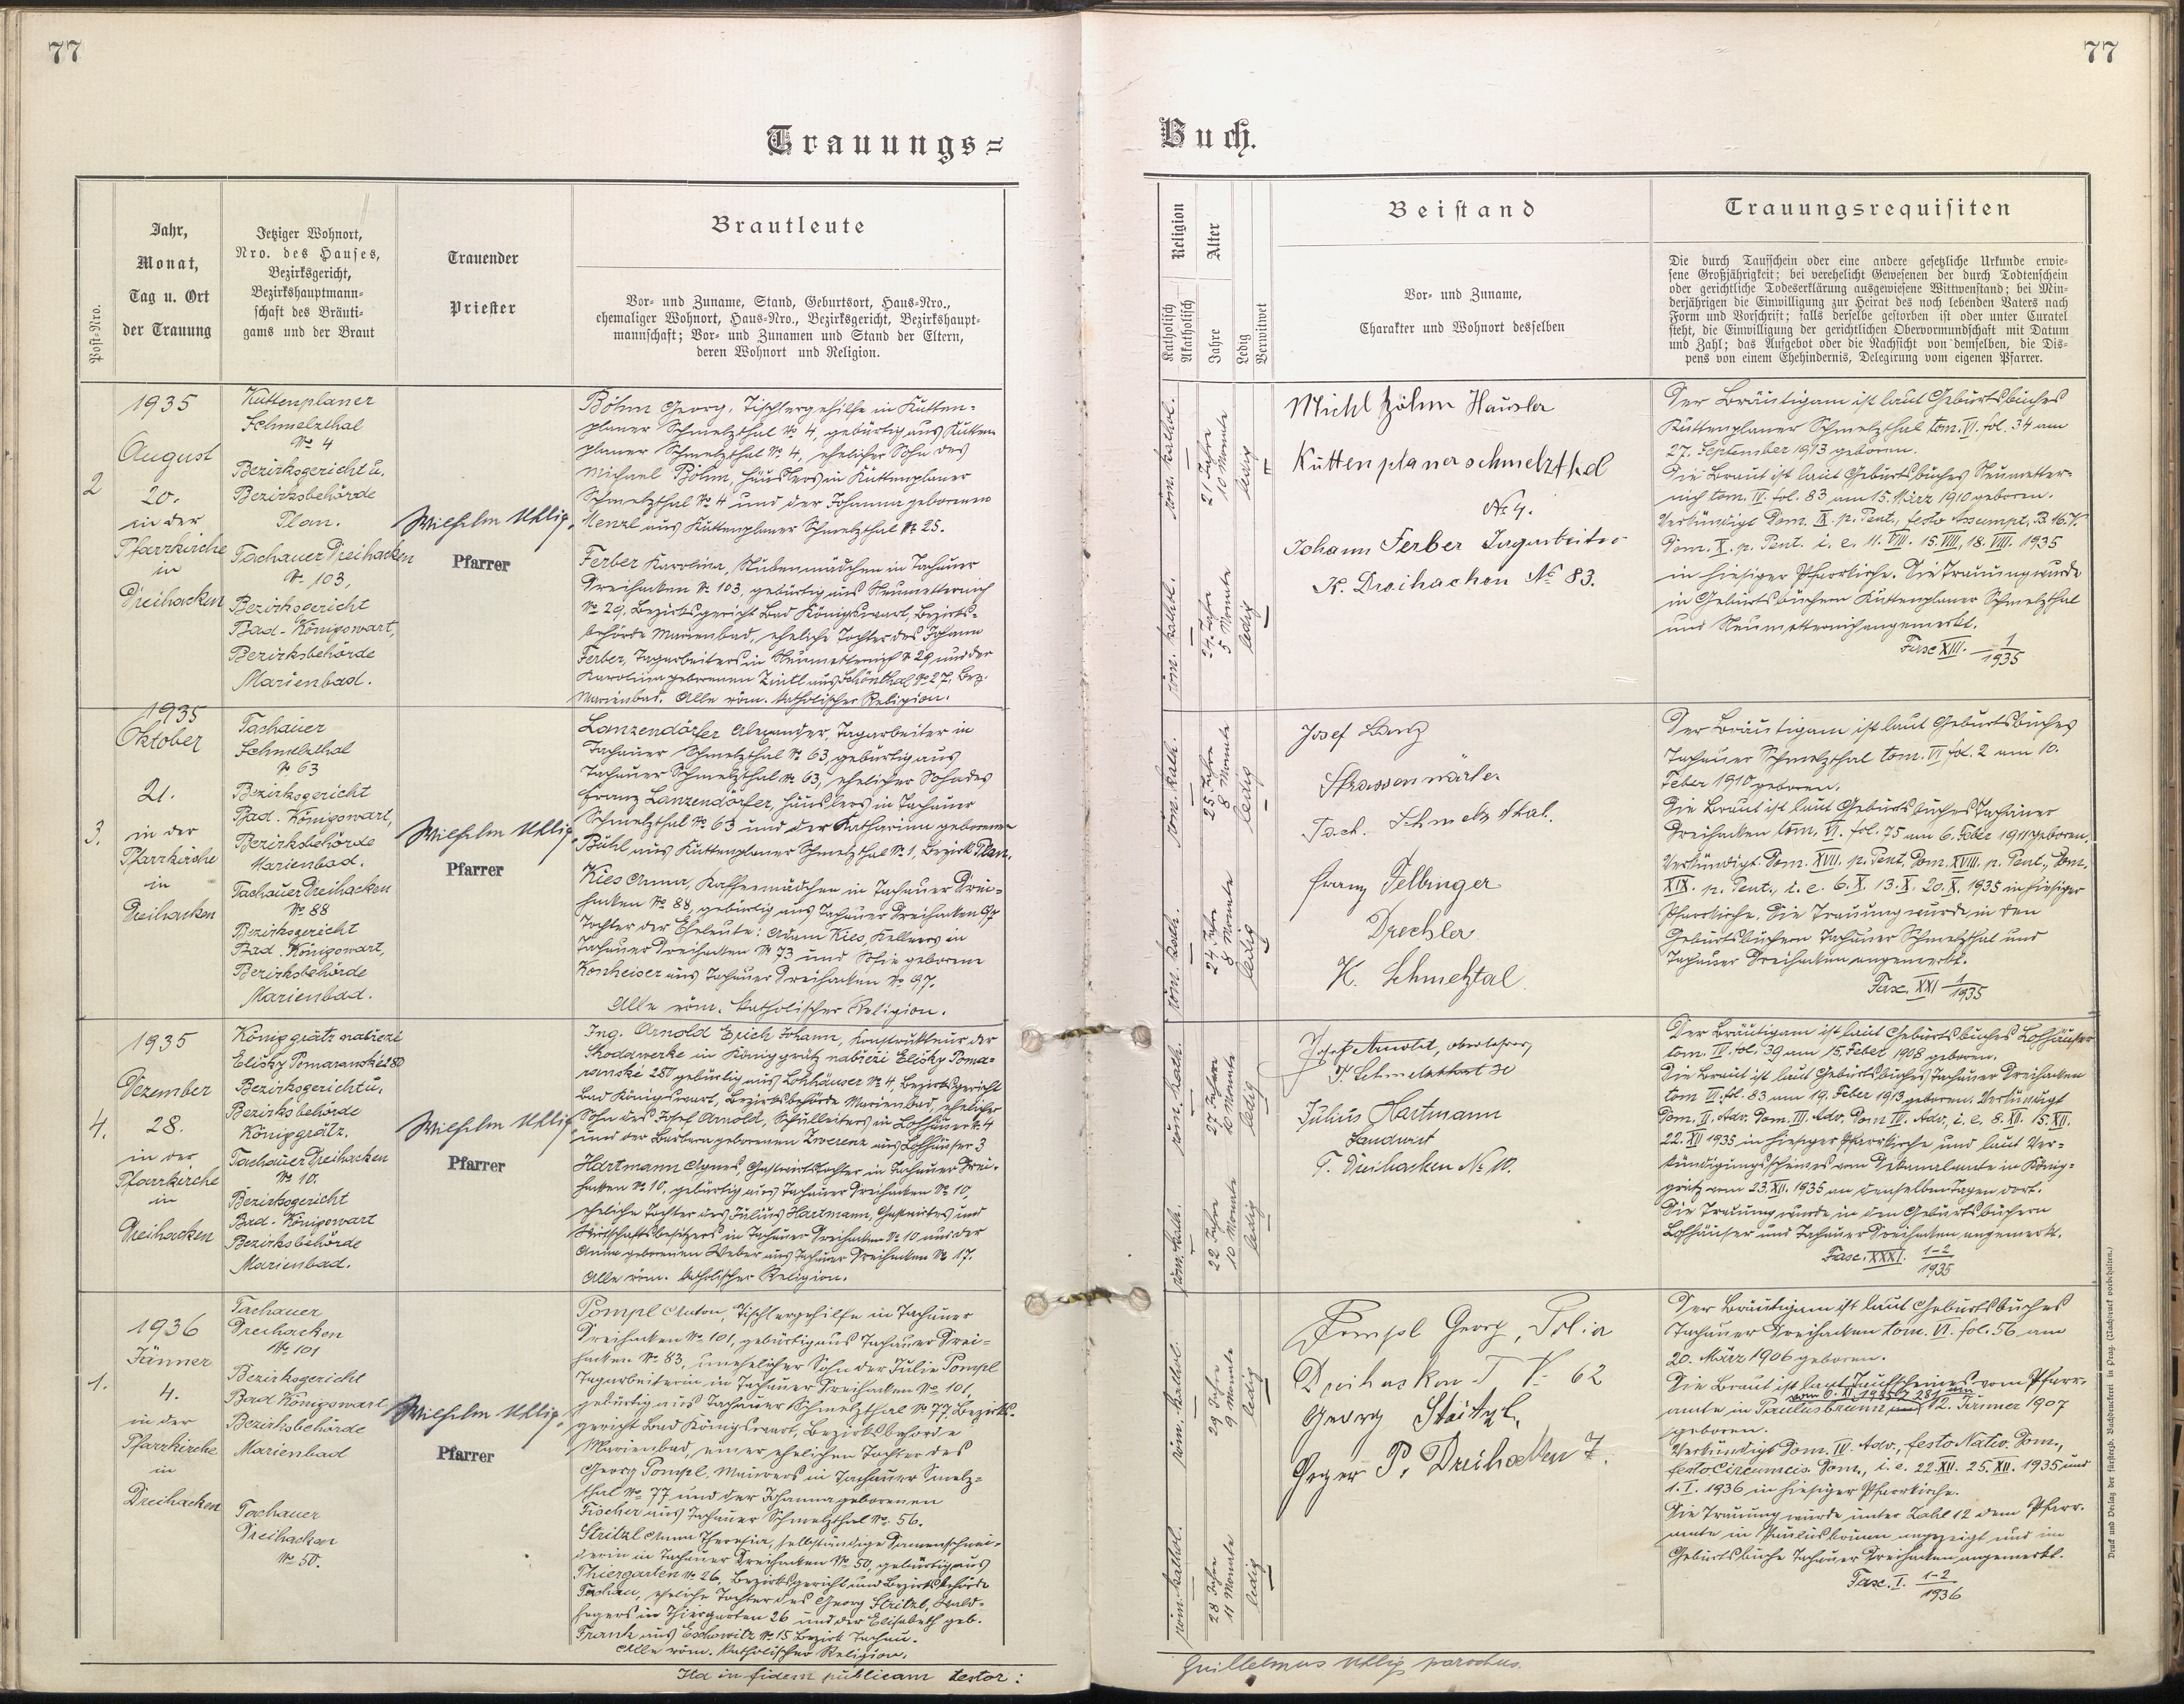 77
77
Trauungs=
Buch.
Post-Nro.
Jahr,
Monat,
Tag u. Ort
der Trauung
Jetziger Wohnort,
Nro. des Hauses,
Bezirksgericht,
Bezirkshauptmann-
schaft des Bräuti-
gams und der Braut
Trauender
Priester
Brautleute
Vor- und Zuname, Stand, Geburtsort, Haus-Nro.,
ehemaliger Wohnort, Haus-Nro., Bezirksgericht, Bezirkshaupt-
mannschaft; Vor- und Zunamen und Stand der Eltern,
deren Wohnort und Religion.
Religion
Katholisch
Akatholisch
Alter
Jahre
Ledig
Verwitwet
Beistand
Vor- und Zuname,
Charakter und Wohnort desselben
Trauungsrequisiten
Die durch Taufschein oder eine andere gesetzliche Urkunde erwie-
sene Großjährigkeit; bei verehelicht Gewesenen der durch Todtenschein
oder gerichtliche Todeserklärung ausgewiesene Wittwenstand; bei Min-
derjährigen die Einwilligung zur Heirat des noch lebenden Vaters nach
Form und Vorschrift; falls derselbe gestorben ist oder unter Curatel
steht, die Einwilligung der gerichtlichen Obervormundschaft mit Datum
und Zahl; das Aufgebot oder die Nachsicht von demselben, die Dis-
pens von einem Ehehindernis, Delegirung vom eigenen Pfarrer.
2
1935
August
20.
in der
Pfarrkirche
in
Dreihacken
Kuttenplaner
Schmelzthal
№ 4
Bezirksgericht u.
Bezirksbehörde
Plan.
Tachauer Dreihacken
№ 103,
Bezirksgericht
Bad-Königswart,
Bezirksbehörde
Marienbad.
Wilhelm Uhlig,
Pfarrer
Böhm Georg, Tischlergehilfe in Kutten-
planer Schmelzthal № 4, gebürtig aus Kutten
planer Schmelzthal № 4, ehelicher Sohn des
Michael Böhm, Häuslers in Kuttenplaner
Schmelzthal № 4 und der Johanna geborenen
Menzl aus Kuttenplaner Schmelzthal № 25.
Ferber Karolina, Stubenmädchen in Tachauer
Dreihacken № 103, gebürtig aus Neumetternich
№ 29, Bezirksgericht Bad Königswart, Bezirks-
behörde Marienbad, eheliche Tochter des Johann
Ferber, Tagarbeiters in Neumetternich № 29 und der
Karolina geborenen Zintl aus Schönthal № 27, Bez.
Marienbad. Alle röm. katholischer Religion.
röm. kathol.
21 Jahre
10 Monate
ledig
röm. kathol.
24 Jahre
5 Monate
ledig
Michl Böhm Häusler
Kuttenplanerschmelzthal
№ 4.
Johann Ferber Tagarbeiter
K. Dreihacken № 83.
Der Bräutigam ist laut Geburtsbuches
Kuttenplaner Schmelzthal tom. VI. fol. 34 am
27. September 1913 geboren.
Die Braut ist laut Geburtsbuches Neumetter-
nich tom. IV. fol. 83 am 15. März 1910 geboren.
Verkündigt Dom. IX. p. Pent., festo Assumpt. B. M. V.
Dom. X. p. Pent. i. e. 11. VIII. 15. VIII. 18. VIII. 1935
in hiesiger Pfarrkirche. Die Trauung wurde
in Geburtsbüchern Kuttenplaner Schmelzthal
und Neumetternich angemerkt.
Fasc XIII. 1/1935
3.
1935
Oktober
21.
in der
Pfarrkirche
in
Dreihacken
Tachauer
Schmelzthal
№ 63
Bezirksgericht
Bad-Königswart,
Bezirksbehörde
Marienbad.
Tachauer Dreihacken
№ 88
Bezirksgericht
Bad-Königswart,
Bezirksbehörde
Marienbad.
Wilhelm Uhlig,
Pfarrer
Lanzendörfer Alexander, Tagarbeiter in
Tachauer Schmelzthal № 63, gebürtig aus
Tachauer Schmelzthal № 63, ehelicher Sohn des
Franz Lanzendörfer, Häuslers in Tachauer
Schmelzthal № 63 und der Katharina geborenen
Bühl aus Kuttenplaner Schmelzthal № 1, Bezirk Plan.
Kies Anna, Kaffeemädchen in Tachauer Drei-
hacken № 88, gebürtig aus Tachauer Dreihacken 97
Tochter der Eheleute: Adam Kies, Kellners in
Tachauer Dreihacken № 73 und Sofie geborene
Konheiser aus Tachauer Dreihacken № 97.
Alle röm. katholischer Religion.
röm. kath.
25 Jahre
8 Monate
ledig
röm. kath.
24 Jahre
8 Monate
ledig
Josef
Strassenwärter
Tach. Schmelzthal.
Franz Fellinger
Drechsler
K. Schmelztal
Der Bräutigam ist laut Geburtsbuches
Tachauer Schmelzthal tom. VI fol. 2 am 10.
Feber 1910 geboren.
Die Braut ist laut Geburtsbuches Tachauer
Dreihacken tom. VI. fol. 75 am 6. Feber 1911 geboren.
Verkündigt Dom. XVII. p. Pent, Dom. XVIII. p. Pent., Dom.
XIX. p. Pent., i. e. 6. X. 13. X. 20. X. 1935 in hiesiger
Pfarrkirche. Die Trauung wurde in den
Geburtsbüchern Tachauer Schmelzthal und
Tachauer Dreihacken angemerkt.
Fasc. XXI 1/1935
4.
1935
Dezember
28.
in der
Pfarrkirche
in
Dreihacken
Königgrätz nabřezi
Elišky Pomaranské 280
Bezirksgericht u.
Bezirksbehörde
Königgrätz.
Tachauer Dreihacken
№ 10.
Bezirksgericht
Bad-Königswart
Bezirksbehörde
Marienbad.
Wilhelm Uhlig
Pfarrer
Ing. Arnold Erich Johann, Konstrukteur der
Skodawerke in Königgrätz nabřezi Elišky Poma-
ranské 280 gebürtig aus Lohhäuser № 4, Bezirksgericht
Bad Königswart, Bezirksbehörde Marienbad, ehelicher
Sohn des Josef Arnold, Schulleiters in Lohhäuser № 4
und der Barbara geborenen Zwerenz aus Lohhäuser 3
Hartmann Agnes, Gastwirtstochter in Tachauer Drei-
hacken № 10, gebürtig aus Tachauer Dreihacken № 10,
eheliche Tochter des Julius Hartmann, Gastwirtes und
Wirtschaftsbesitzers in Tachauer Dreihacken № 10 und der
Anna geborenen Weber aus Tachauer Dreihacken № 17.
Alle röm. katholischer Religion.
röm. kath.
27 Jahre
10 Monate
ledig
röm. kath.
22 Jahre
10 Monate
ledig
Josef Arnold, Oberlehrer,
Julius Hartmann
Landwirt
T. Dreihacken № 10.
Der Bräutigam ist laut Geburtsbuches Lohhäuser
tom. IV. fol. 39 am 15. Feber 1908 geboren.
Die Braut ist laut Geburtsbuches Tachauer Dreihacken
tom VI. fol. 83 am 19. Feber 1913 geboren. Verkündigt
Dom. II. Adv. Dom. III. Adv. Dom IV. Adv. i. e. 8. XII. 15. XII.
22. XII 1935 in hiesiger Pfarrkirche und laut Ver-
kündigungsscheines vom Dekanalamte in König-
grätz vom 23. XII. 1935 an denselben Tagen dort.
Die Trauung wurde in den Geburtsbüchern
Lohhäuser und Tachauer Dreihacken angemerkt.
Fasc. XXXI. 1-2/1935
1.
1936
Jänner
4.
in der
Pfarrkirche
in
Dreihacken
Tachauer
Dreihacken
№ 101
Bezirksgericht
Bad Königswart
Bezirksbehörde
Marienbad
Tachauer
Dreihacken
№ 50.
Wilhelm Uhlig,
Pfarrer
Pompl Anton, Tischlergehilfe in Tachauer
Dreihacken № 101, gebürtig aus Tachauer Drei-
hacken № 83, unehelicher Sohn der Julie Pompl
Tagarbeiterin in Tachauer Dreihacken № 101,
gebürtig aus Tachauer Schmelzthal № 77, Bezirks-
gericht Bad Königswart, Bezirksbehörde
Marienbad, einer ehelichen Tochter des
Georg Pompl, Maurers in Tachauer Smelz-
thal № 77 und der Johanna geborenen
Fischer aus Tachauer Schmelzthal № 56.
Stritzl Anna Theresia, selbständige Damenschnei-
derin in Tachauer Dreihacken № 50, gebürtig aus
Thiergarten № 26, Bezirksgericht und Bezirksbehörde
Tachau, eheliche Tochter des Georg Stritzl, Wald-
hegers in Thiergarten 26 und der Elisabeth geb.
Frank aus Eschowitz № 15 Bezirk Tachau.
Alle röm. katholischer Religion.
röm. kathol.
29 Jahre
9 Monate
ledig
röm. kathol.
28 Jahre
11 Monate
ledig
Pompl Georg,
Dreihacken T № 62
Georg
Heger P. Dreihacken 7.
Der Bräutigam ist laut Geburtsbuches
Tachauer Dreihacken tom. VI. fol. 56 am
20. März 1906 geboren.
Die Braut ist laut Taufscheines vom Pfarr-
vom 6. XI. 1935 Z 281 am
amte in Paulusbrunn 12. Jänner 1907
geboren.
Verkündigt Dom. IV. Adv., festo Nativ. Dom.,
festo Circumcis. Dom., i. e. 22. XII. 25. XII. 1935 und
1. I. 1936 in hiesiger Pfarrkirche.
Die Trauung wurde unter Zahl 12 dem Pfarr-
amte in Paulusbrunn angezeigt und im
Geburtsbuche Tachauer Dreihacken angemerkt.
Fasc. I. 1-2/1936
Ita in fidem publicam testor:
Guillelmus Uhlig parochus.
Druck und Verlag der fürsterzb. Buchdruckerei in Prag. (Nachdruck vorbehalten.)